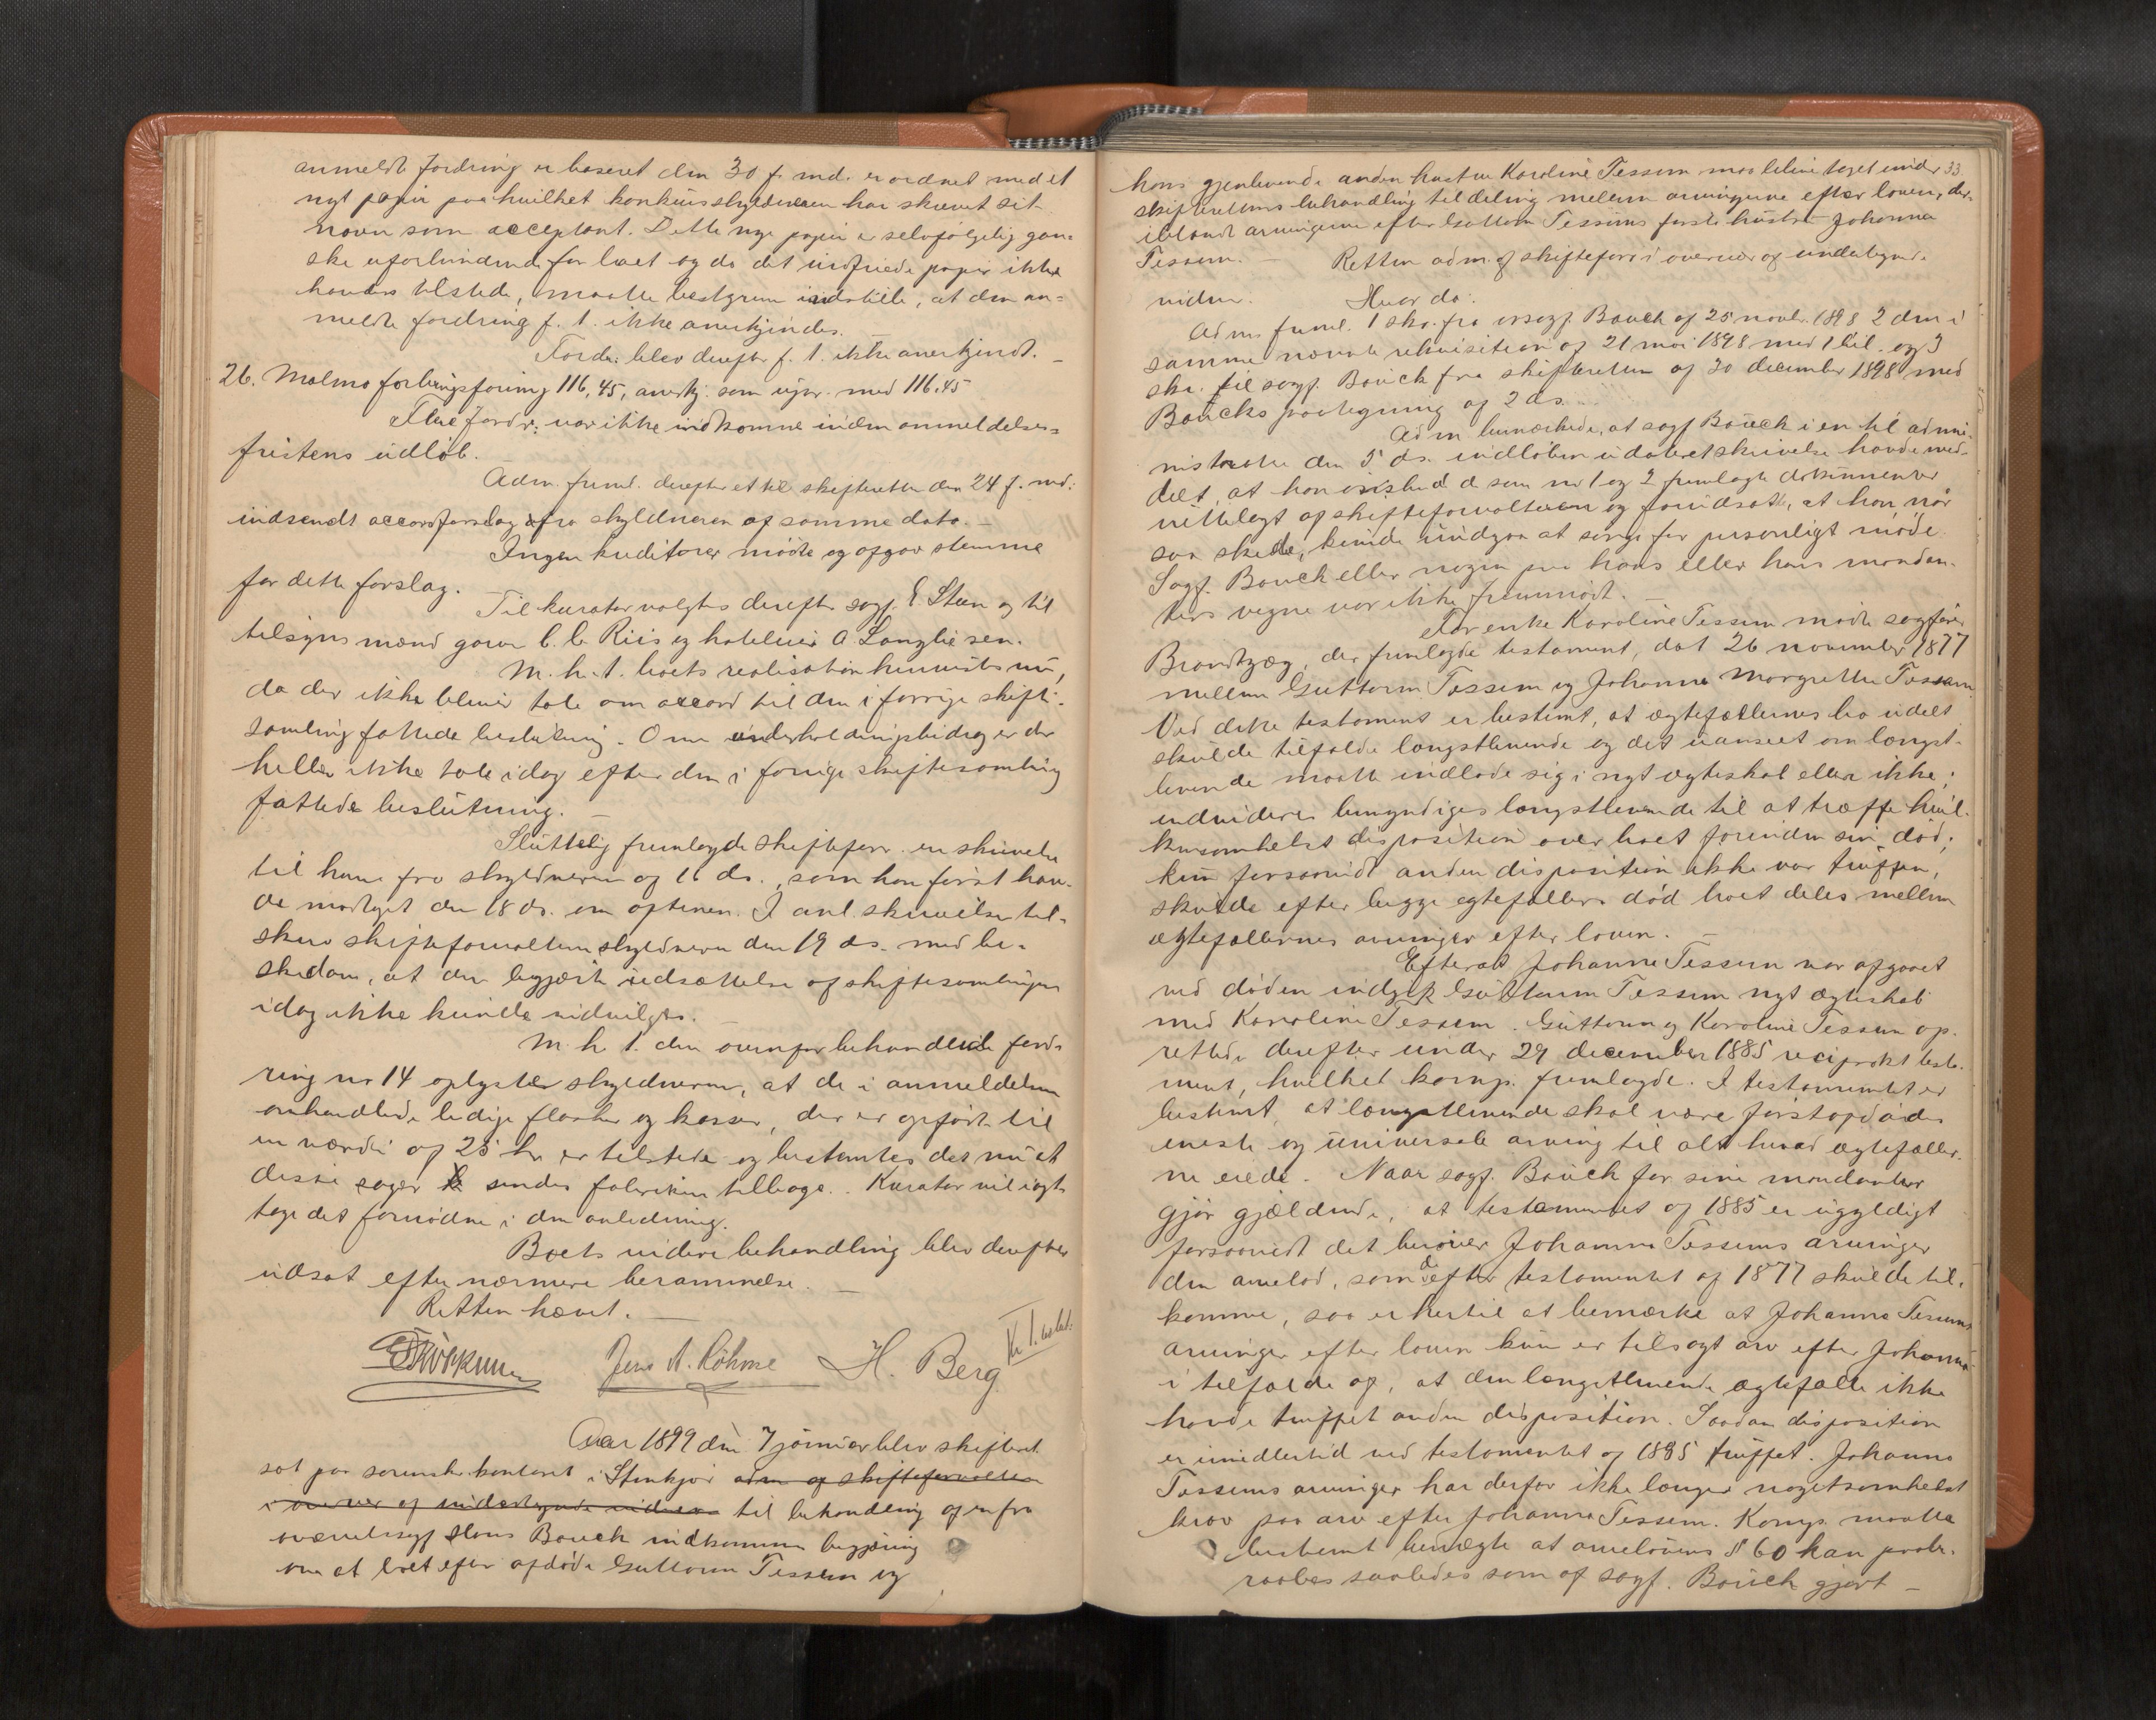 anmeldt fordring er baseret den 30 f. md. er ordnet med et
nyt papir paa hvilket konkursskyldneren har skrevet sit
navn som acceptant. Dette nye papir er selvfølgelig gan-
ske uforbindende for boet og da det indfriede papir ikke
havdes tilstede, maatte bestyren indstille, at den an-
meldte fordring f. t. ikke anerkjendes.
Fordr. blev derefter f. t. ikke anerkjendt. –
26. Malmø forlagsforening 116,45, anerkj. som upr. med 116.45
Flere fordr. var ikke indkomne inden anmeldelses-
fristens udløb.
Adm. freml. derefter et til skifteretten den 24 f. md.
indsendt accordforslag fra skyldneren af samme dato. –
Ingen kreditorer mødte og afgav stemme
for dette forslag.
Til kurator valgtes derefter sagf. E Steen og til
tilsynsmænd C. C. Riis og hoteleier A Langlie sen.
M. h. t. boets realisation henvistes nu,
da der ikke blev tale om accord til den i forrige skifte-
samling fattede beslutning. Om underholdningsbidrag er der
heller ikke tale idag efter den i forrige skiftesamling
fattede beslutning. –
Sluttelig fremlagde skifteforv. en skrivelse
til ham fra skyldneren af 16 ds., som han først hav-
de modtaget den 18 ds. om aftenen. I anl. skrivelsen til-
skrev skifteforvalteren skyldneren den 19 ds. med be-
skeden, at den begjærte udsættelse af skiftesamlingen
idag ikke kunde indvilges. –
M. h. t. den ovenfor behandlede ford-
ring nr 14 oplyste skyldneren, at de i anmeldelsen
omhandlede ledige flasker og kasser, der er opført til
en værdi af 25 kr er tilstede og bestemtes det nu at
disse sager sendes fabriken tilbage. Kurator vil iagt-
tage det fornødne i den anledning.
Boets videre behandling blev derefter
udsat efter nærmere berammelse. –
Retten hævet. –
Jens A. Røhme H. Berg
Aar 1899 den 7 januar blev skifteret
sat paa sorenskr.kontoret i Stenkjær adm af skifteforvalteren
i overvær af undertegnede vidner til behandling af en fra
overretssagf Hans Bauck indkommen begjæring
om at boet efter afdøde Guttorm Tessem og
33
hans gjenlevende anden hustru Karoline Tessem maa blive taget under
skifterettens behandling til deling mellem arvingerne efter loven, der-
iblandt arvingerne efter Guttorm Tessems første hustru Johanna
Tessem. – Retten adm. af skifteforv i overvær og undertegnede
vidner. Hvor da:
Adm freml. 1 skr. fra orsagf. Bauck af 25 novbr. 1898 2 den i
samme nævnte rekvisition af 21 mai 1898 med 1 bil. og 3
skr. til sagf. Bauck fra skifteretten af 30 december 1898 med
Baucks paategning af 2 ds. –
Adm bemærkede, at sagf Bauck i en til admi-
nistrator den 5 ds. indløben udateret skrivelse havde med-
delt, at han ønsked de som nr 1 og 2 fremlagte dokumenter
vittelagt af skifteforvalteren og forudsatte, at han, naar
saa skede, kunde undgaa at sørge for personligt møde.
Sagf. Bauck eller nogen paa hans eller hans mandan-
ters vegne var ikke fremmødt. –
For enke Karoline Tessem mødte sagfører
Brandtzæg, der fremlagde testament, dat 26 november 1877
mellem Guttorm Tessem og Johanna Margrethe Tessem.
Ved dette testament er bestemt, at ægtefællernes bo udelt
skulde tilfalde længstlevende og det uanseet om længst-
levende maatte indlade sig i nyt ægteskab eller ikke;
endvidere bemyndiges længstlevende til at træffe hvil-
kensomhelst disposition over boet forinden sin død;
kun forsaavidt anden disposition ikke var truffen,
skulde efter begge egtefællers død boet deles mellem
ægtefællernes arvinger efter loven. –
Efterat Johanna Tessem var afgaaet
ved døden indgik Guttorm Tessem nyt ægteskab
med Karoline Tessem. Guttorm og Karoline Tessem op-
rettede derefter under 29 december 1885 reciprokt testa-
ment, hvilket komp. fremlagde. I testamentet er
bestemt, at længstlevende skal være førstafdødes
eneste og universale arving til alt hvad ægtefæller-
ne eiede. Naar sagf. Bauck for sine mandanter
gjør gjældende, at testamentet af 1885 er ugyldigt
forsaavidt det berøver Johanna Tessems arvinger
den arvelod, som de efter testamentet af 1877 skulde til-
komme, saa er hertil at bemærke at Johanna Tessems
arvinger efter loven kun er tilsagt arv efter Johanna
i tilfælde af, at den længstlevende ægtefælle ikke
havde truffet anden disposition. Saadan disposition
er imidlertid ved testamentet af 1885 truffet. Johanna
Tessems arvinger har derfor ikke længer nogetsomhelst
krav paa arv efter Johanna Tessem. Komp. maatte
bestemt benægte at arvelovens § 60 kan paabe-
raabes saaledes som af sagf. Bauck gjort –